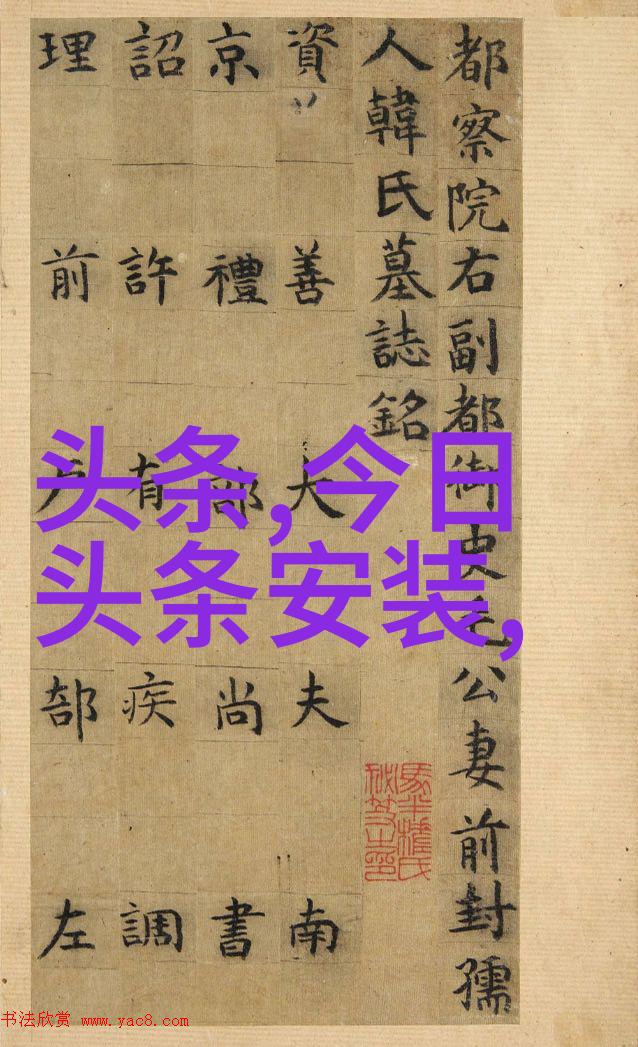 都察院右副都御史毛公妻前封孺
人韓氏墓誌銘
資善大夫南
京禮部尚書
詔許有疾調
理前户部左
头条,今日
头条安装,
书法欣赏 www.yac8.com